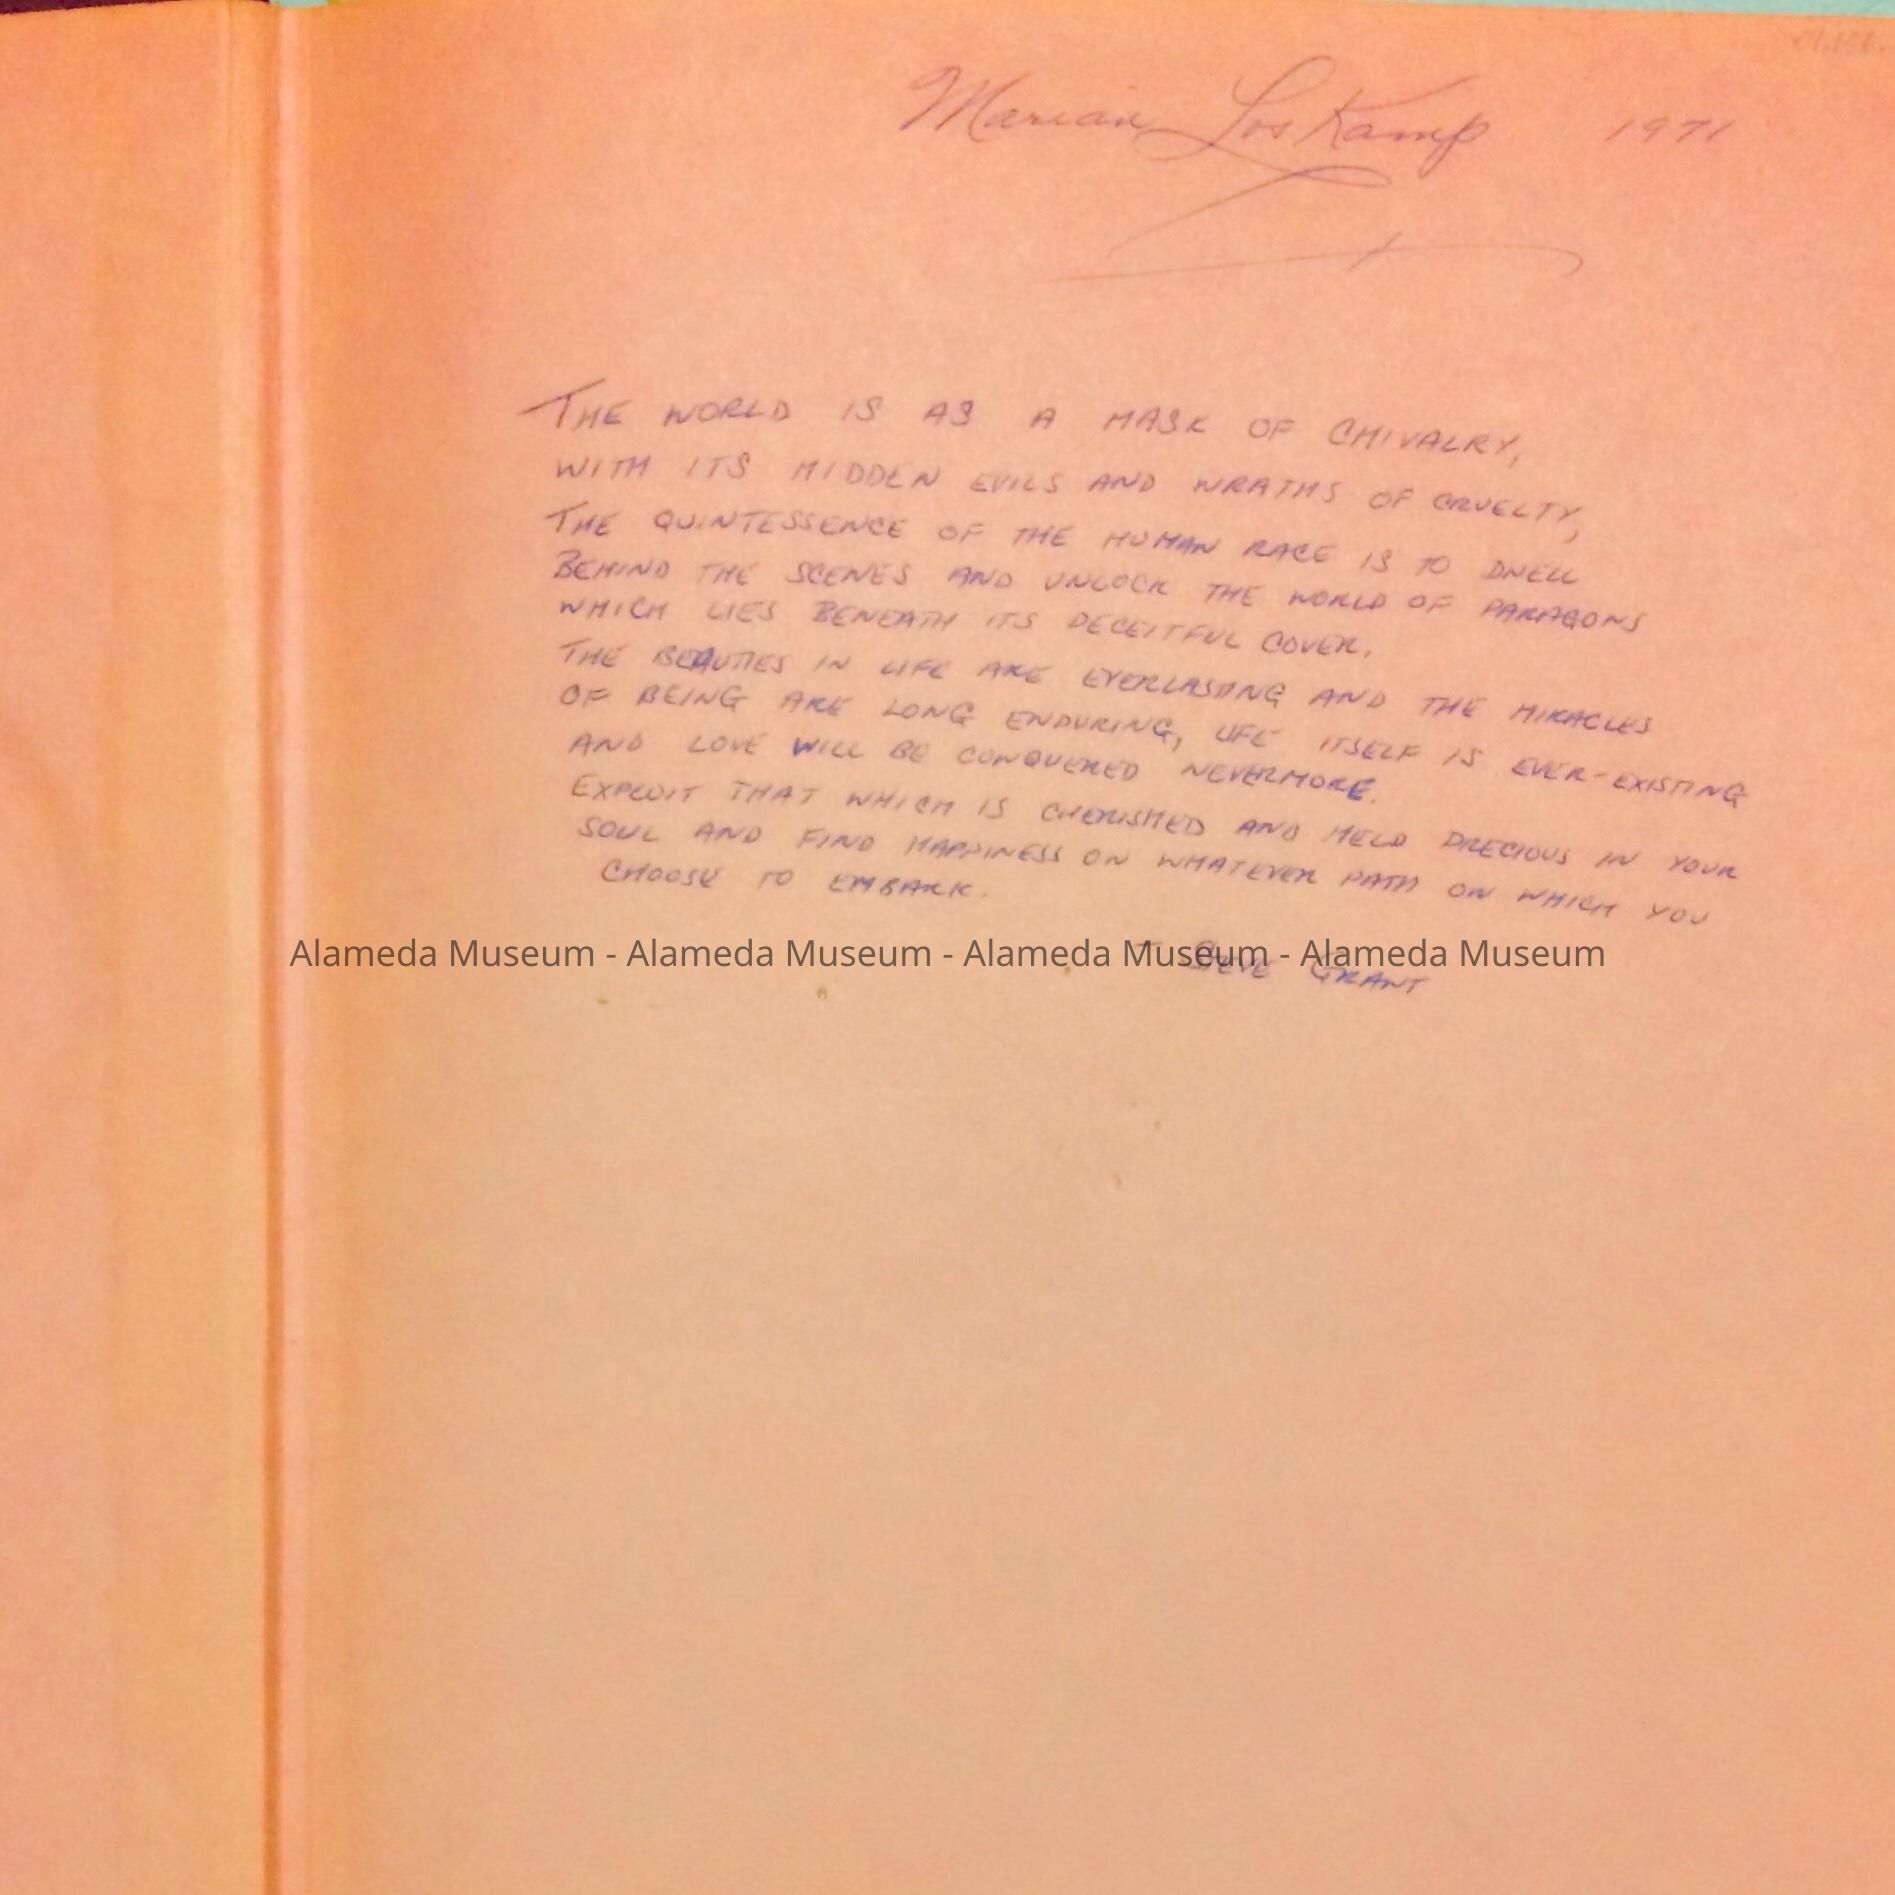 Marian LosKamp 1971
THE WORLD IS AS A MASK OF CHIVALRY,
WITH ITS HIDDEN EVILS AND WRATHS OF CRUELTY,
THE QUINTESSENCE OF THE HUMAN RACE IS TO DWELL
BEHIND THE SCENES AND UNLOCK THE WORLD OF PARAGONS
WHICH LIES BENEATH ITS DECEITFUL COVER.
THE BEAUTIES IN LIFE ARE EVERLASTING AND THE MIRACLES
OF BEING ARE LONG ENDURING, LIFE ITSELF IS EVER-EXISTING
AND LOVE WILL BE CONQUERED NEVERMORE.
EXPLOIT THAT WHICH IS CHERISHED AND HELD PRECIOUS IN YOUR
SOUL AND FIND HAPPINESS ON WHATEVER PATH ON WHICH YOU
CHOOSE TO EMBARK.
Alameda Museum - Alameda Museum - Alameda Museum - Alameda Museum
STEVE GRANT